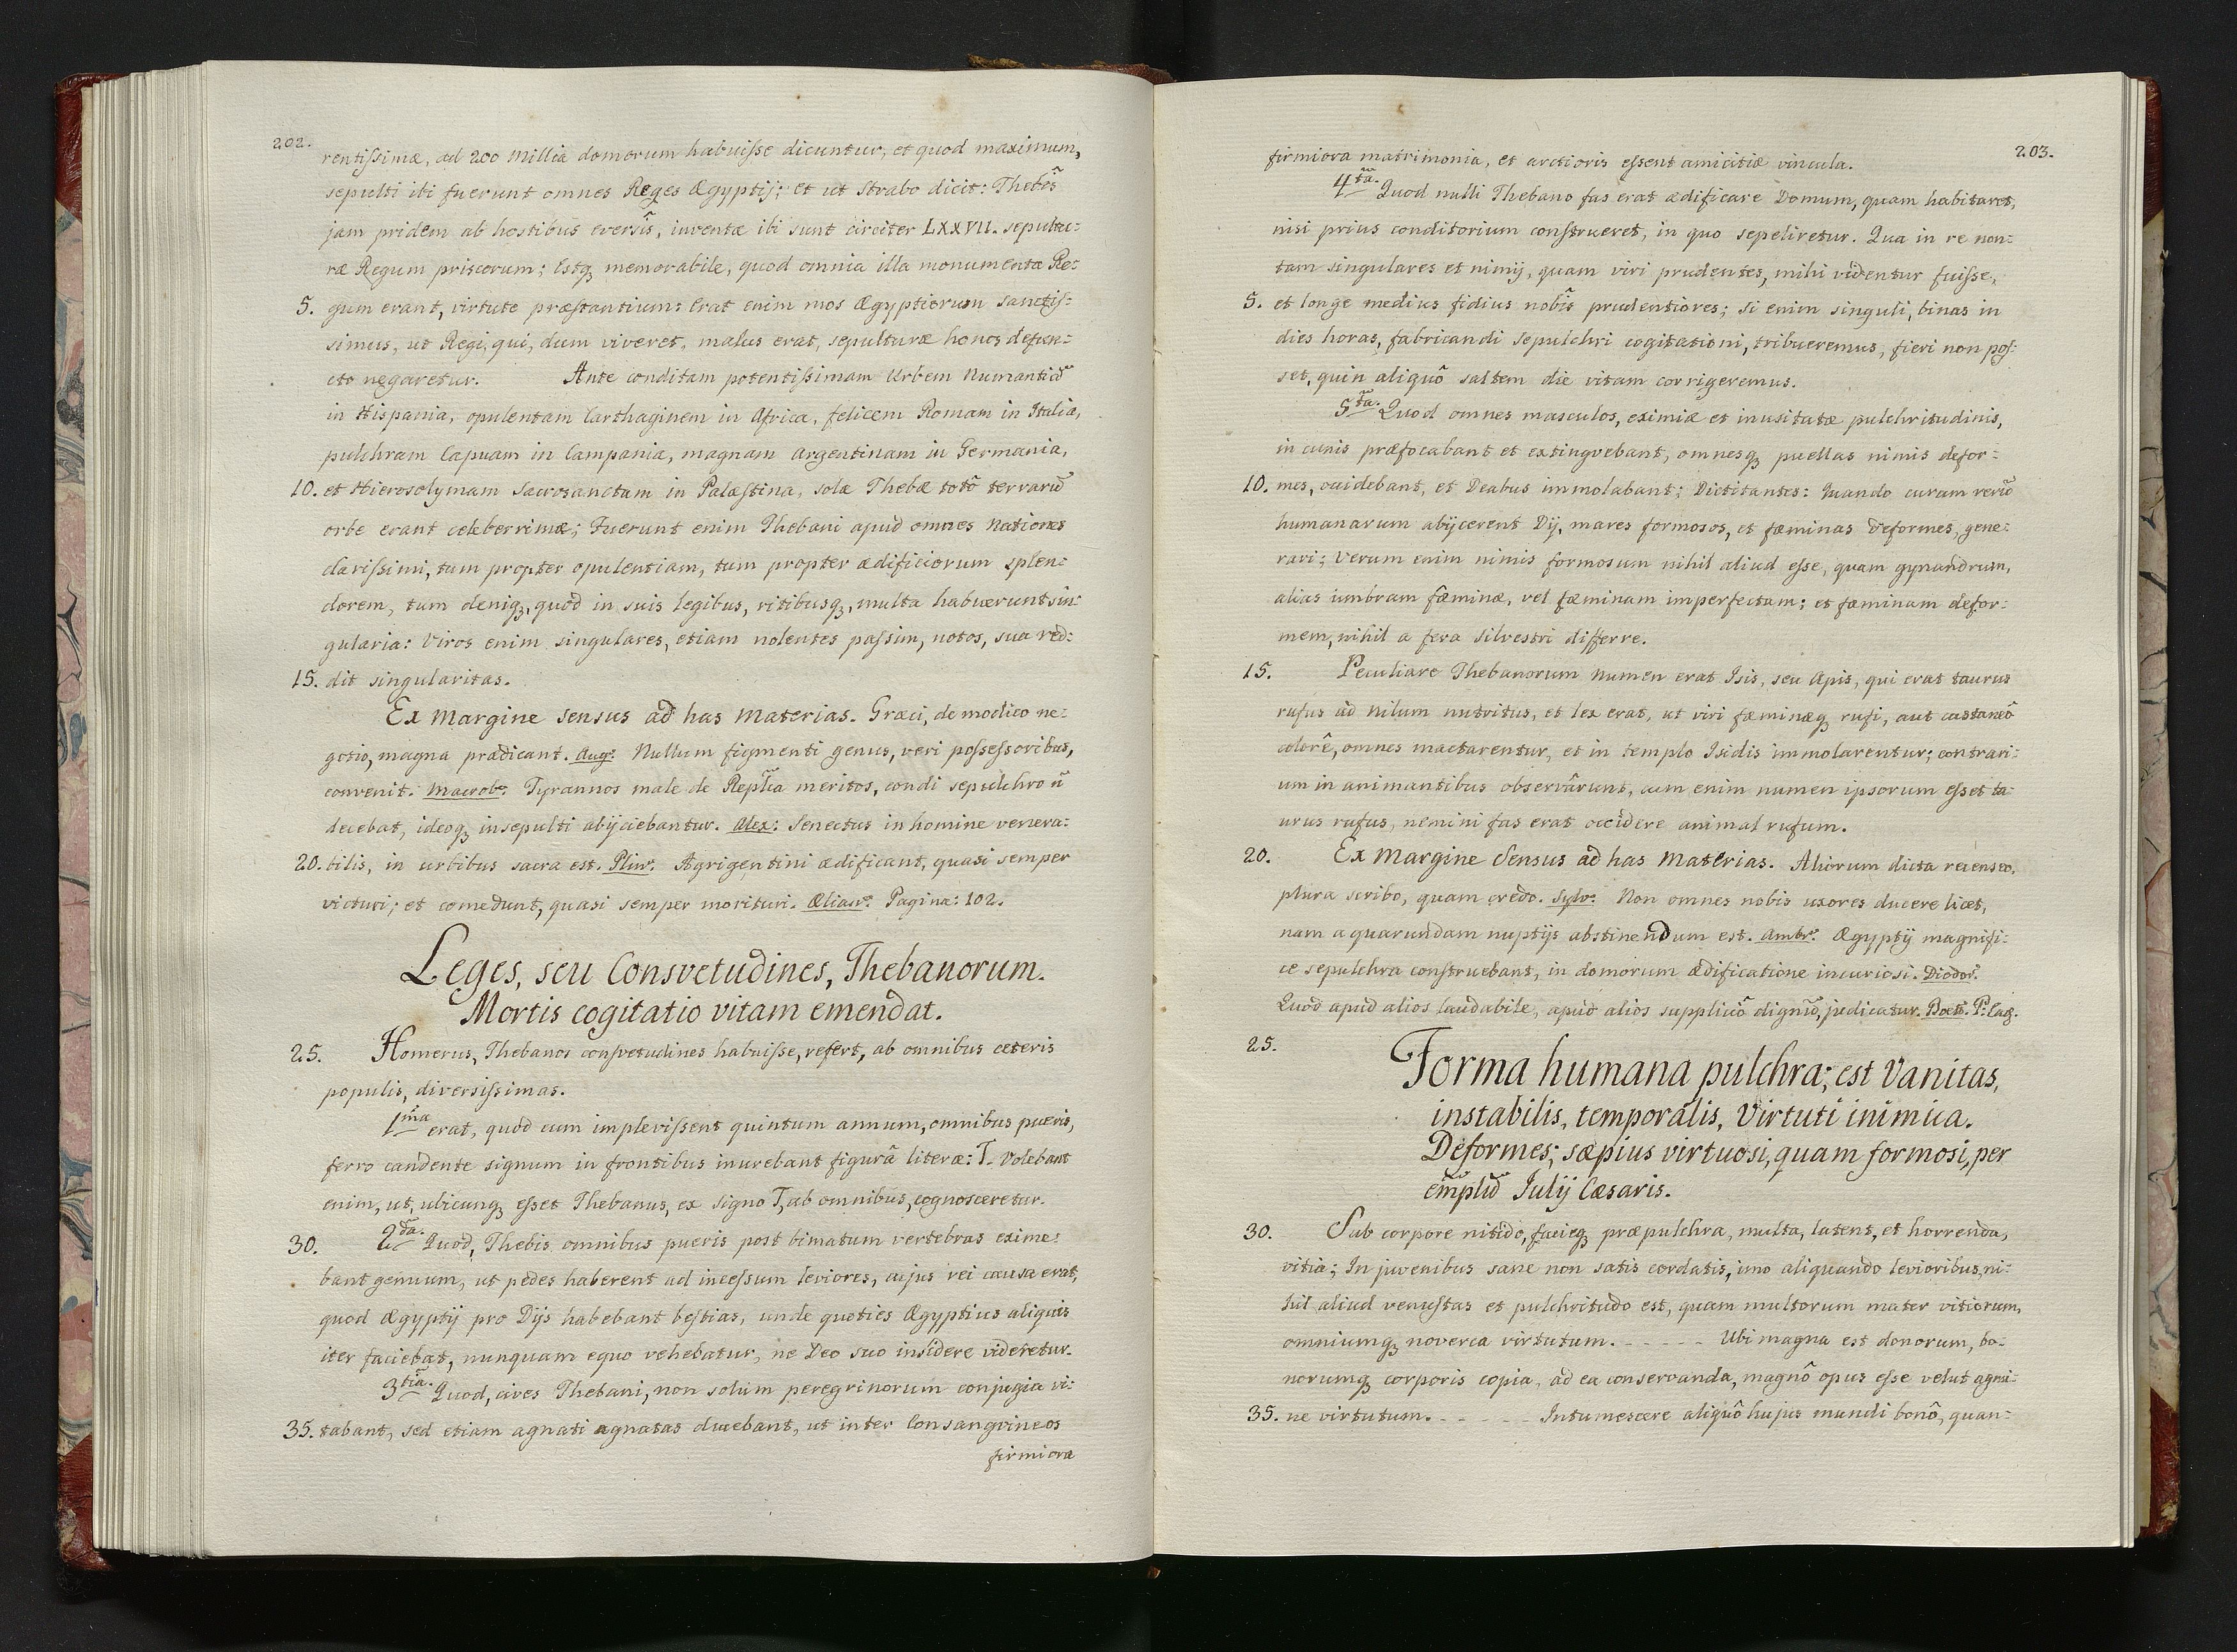 202.
rentissimæ, ad 200 Millia domorum habuisse dicuntur, et quod maximum,
sepulti ibi fuerunt omnes Reges Ægyptij; et ut Strabo dicit: Thebis
jam pridem ab hostibus eversis, inventæ ibi sunt circiter LXXVII. sepultu:
ræ Regum priscorum; Estq, memorabile, quod omnia illa monumenta Re:
5. gum erant, virtute præstantium: Erat enim mos Ægyptiorum sanctis:
simus, ut Regi, qui, dum viveret, malus erat, sepulturæ honos defun:
cto negaretur. Ante conditam potentissimam Urbem Numantiã
in Hispania, opulentam Carthaginem in Africa, felicem Romam in Italia,
pulchram Capuam in Campania, magnam Argentinam in Germania,
10. et Hierosolymam Sacrosanctam in Palæstina, solæ Thebæ totô terrarũ
orbe erant celeberrimæ; Fuerunt enim Thebani apud omnes Nationes
clarissimi, tum propter opulentiam, tum propter ædificiorum splen:
dorem, tum deniq, quòd in suis legibus, ritibusq, multa habuerunt sin:
gularia: Viros enim singulares, etiam nolentes passim, notos, sua red:
15. dit singularitas.
Ex Margine sensus ad has Materias. Græci, de modico ne:
gotio, magna prædicant. Aug: Nullum figmenti genus, veri possessoribus,
convenit. Macrob: Tyrannos male de Repltã meritos, condi sepulchro ñ
decebat, ideoq, insepulti abijciebantur. Alex: Senectus in homine venera:
20. bilis, in urbibus sacra est. Plin: Agrigentini ædificant, quasi semper
victuri; et comedunt, quasi semper morituri. Ælian: Pagina: 102.
Leges, seu Consvetudines, Thebanorum.
Mortis cogitatio vitam emendat.
25. Homerus, Thebanos consvetudines habuisse, refert, ab omnibus ceteris
populis, diversissimas.
1ma erat, quòd cum implevissent quintum annum, omnibus pueris,
ferro candente signum in frontibus inurebant figurâ literæ: T. Volebant
enim, ut, ubicunq, esset Thebanus, ex signo T, ab omnibus, cognosceretur.
30. 2da. Quòd, Thebis omnibus pueris post bimatum vertebras exime:
bant genuum, ut pedes haberent ad incessum leviores, cujus rei causa erat,
quod Ægyptij pro Dijs habebant bestias, unde quoties Ægyptius aliquis
iter faciebat, nunquam equo vehebatur, ne Deo suo insidere videretur.
3tia. Quod, cives Thebani, non solùm peregrinorum conjugia vi:
35. tabant, sed etiam agnati agnatas ducebant, ut inter Consangvineos
firmiora
203.
firmiora matrimonia, et arctioris essent amicitiæ vincula.
4ta. Quod nulli Thebano fas erat ædificare Domum, quam habitaret,
nisi prius conditorium construeret, in quo sepeliretur. Qua in re non:
tam singulares et nimij, quam viri prudentes, mihi videntur fuisse,
5. et longe medius fidius nobis prudentiores; Si enim singuli, binas in
dies horas, fabricandi sepulchri cogitationi, tribueremus, fieri non pos:
set, quin aliquô saltem die vitam corrigeremus.
5ta. Quod omnes masculos, eximiæ et inusitatæ pulchritudinis,
in cunis præfocabant et extingvebant, omnesq, puellas nimis defor:
10. mes, occidebant, et Deabus immolabant; Dictitantes: Quando curam rerũ
humanarum abijcerent Dij, mares formosos, et fæminas deformes, gene:
rari; Verum enim nimis formosum nihil aliud esse, quam gynandrum,
alias umbram fæminæ, vel fæminam imperfectam; et fæminam defor:
mem, nihil a fera silvestri differre.
15. Peculiare Thebanorum Numen erat Isis, seu Apis, qui erat taurus
rufus ad Nilum nutritus, et lex erat, ut viri fæminæq, rufi, aut castaneô
colorê, omnes mactarentur, et in templo Isidis immolarentur; contrari:
um in animantibus observârunt, cum enim numen ipsorum esset ta
urus rufus, nemini fas erat occidere animal rufum.
20. Ex Margine Sensus ad has Materias. Aliorum dicta recenseo,
plura scribo, quam credo. Sylv: Non omnes nobis uxores ducere licet,
nam a quarundam nuptijs abstinendum est. Ambr: Ægyptij magnifi:
ce sepulchra construebant, in domorum ædificatione incuriosi. Diodor.
Quod apud alios laudabile, apud alios suppliciô dignũ, judicatur. Boët. P: Eaq.
25. Forma humana pulchra; est Vanitas,
instabilis, temporalis, Virtuti inimica.
Deformes; sæpius virtuosi, quam formosi, per
exmplũ Julij Cæsaris.
30. Sub corpore nitido, facieq, præpulchra, multa, latent, et horrenda,
vitia; In juvenibus sane non satis cordatis, imo aliquando levioribus, ni:
hil aliud venustas et pulchritudo est, quam multorum mater vitiorum,
omniumq, noverca virtutum. - - - - - Ubi magna est donorum, bo-
norumq, corporis copia, ad ea conservanda, magnô opus esse velut agmi:
35. ne virtutum. - - - - - Intumescere aliquô hujus mundi bonô, quan: